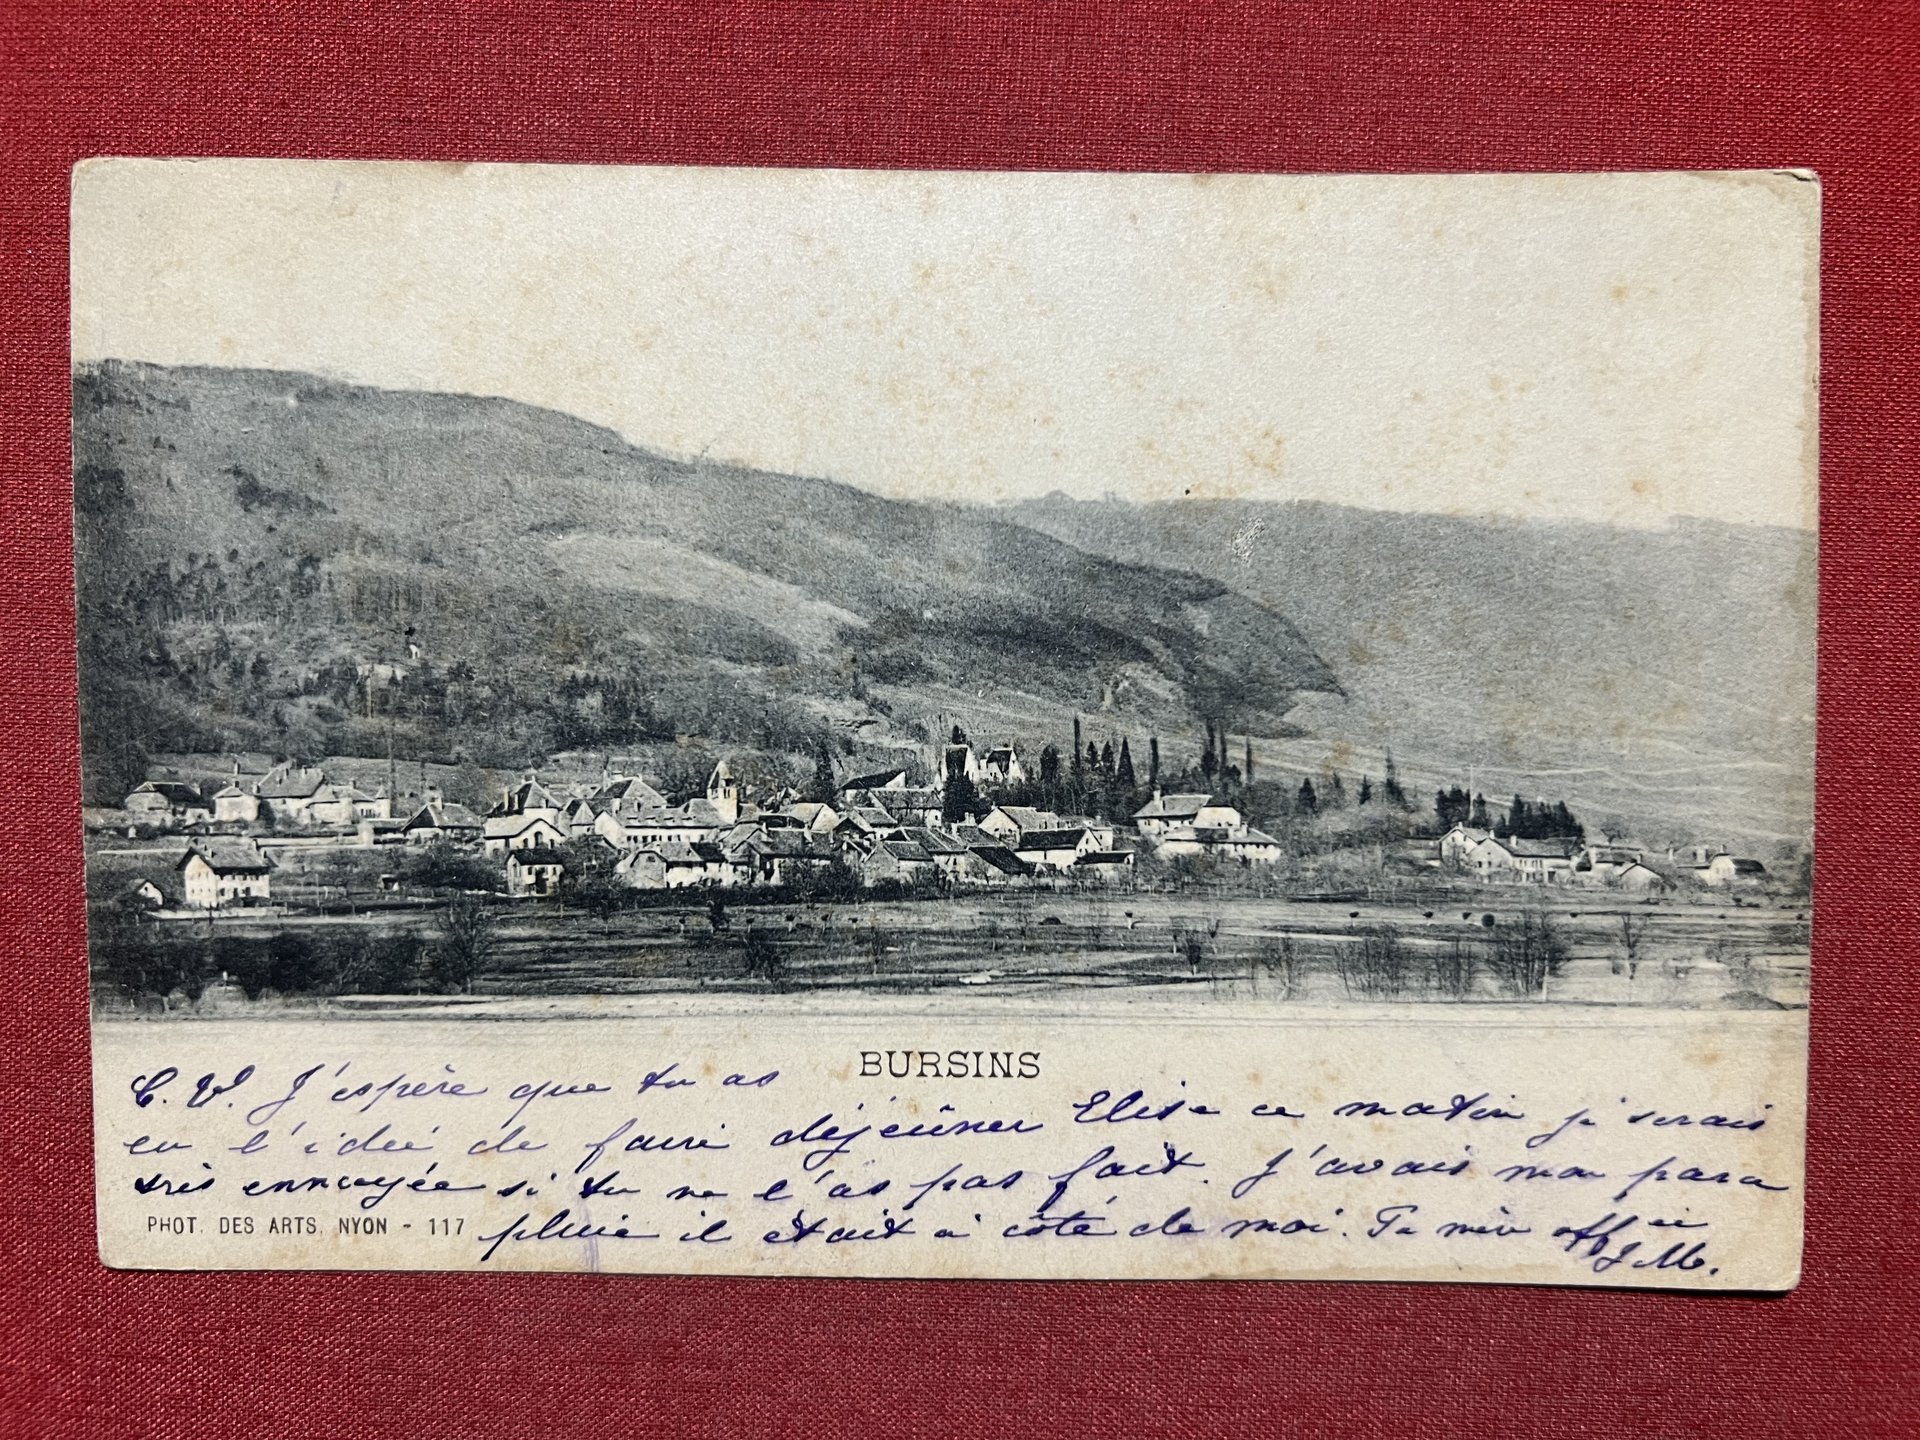 BURSINS
C. V. J'espère que tu as
eu l'idée de faire déjeûner Elise ce matin je serais
très ennuyée si tu ne l'as pas fait. J'avais mon para
pluie il était à côté de moi. Ta mère aff ée
J M.
PHOT. DES ARTS. NYON - 117